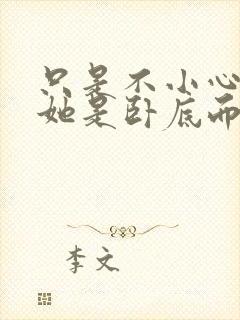 只是不小心
她是卧底而
李文